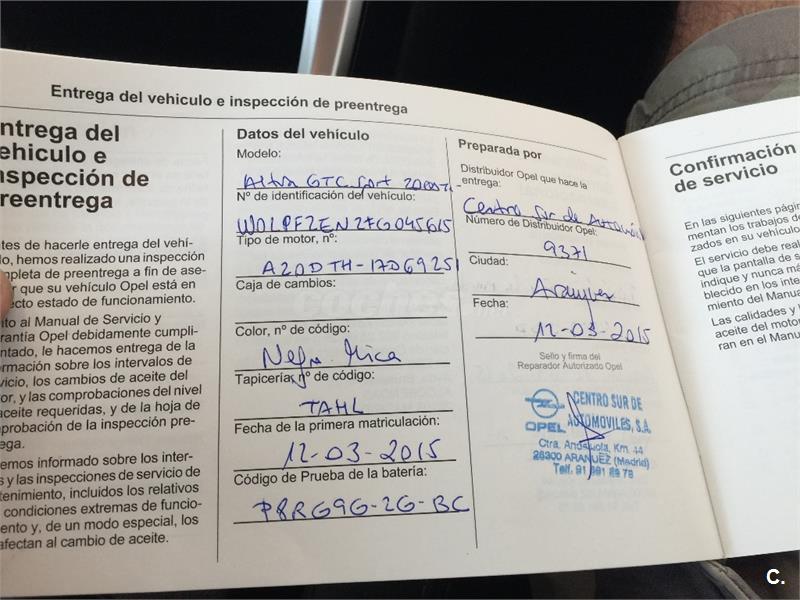 Entrega del vehiculo e inspección de preentrega
ntrega del
ehiculo e
nspección de
reentrega
tes de hacerle entrega del vehí-
lo, hemos realizado una inspección
mpleta de preentrega a fin de ase-
r que su vehículo Opel está en
ecto estado de funcionamiento.
to al Manual de Servicio y
rantía Opel debidamente cumpli-
ntado, le hacemos entrega de la
ormación sobre los intervalos de
vicio, los cambios de aceite del
or, y las comprobaciones del nivel
aceite requeridas, y de la hoja de
probación de la inspección pre-
ega.
emos informado sobre los inter-
s y las inspecciones de servicio de
tenimiento, incluidos los relativos
condiciones extremas de funcio-
ento y, de un modo especial, los
afectan al cambio de aceite.
Datos del vehículo
Modelo:
Astra GTC
Nº de identificación del vehículo:
W0LPF2EN27G045615
Tipo de motor, nº:
A20DTH-17D69251
Caja de cambios:
Color, nº de código:
Negro Mica
Tapicería, nº de código:
TAHL
Fecha de la primera matriculación:
12-03-2015
Código de Prueba de la batería:
P8RG9G-2G-BC
Preparada por
Distribuidor Opel que hace la
entrega:
Centro Sur de
Número de Distribuidor Opel:
9371
Ciudad:
Aranjuez
Fecha:
12-03-2015
Sello y firma del
Reparador Autorizado Opel
OPEL
CENTRO SUR DE
AUTOMOVILES, S.A.
Ctra. Andalucía, Km. 44
28300 ARANJUEZ (Madrid)
Telf. 91 891 89 78
Confirmación
de servicio
En las siguientes págin
mentan los trabajos de
zados en su vehículo
El servicio debe reali
que la pantalla de s
indique y nunca má
blecido en los inte
miento del Manua
Las calidades y
aceite del motor
ran en el Manu
C.